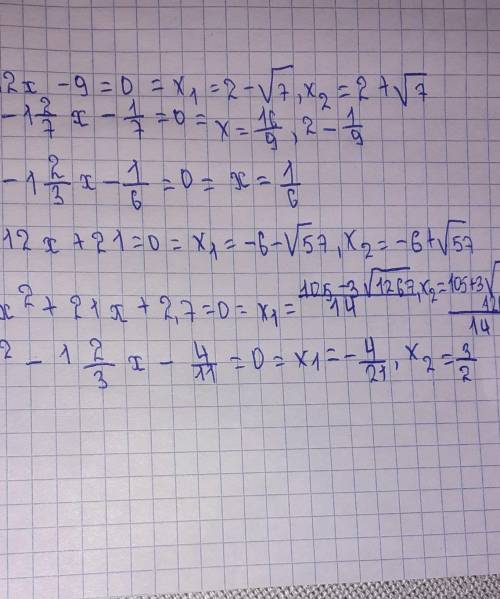 2x - 9 = 0 = x₁ = 2 - √7, x₂ = 2 + √7
- 1 2/7 x - 1/7 = 0 = x = 16/9, 2 - 1/9
- 1 2/3 x - 1/6 = 0 = x = 1/6
12x + 21 = 0 = x₁ = -6 - √57, x₂ = -6 + √57
x² + 21x + 2,7 = 0 = x₁ = (105 - 3√1267)/14, x₂ = (105 + 3√12)/14
2 - 1 2/3 x - 4/11 = 0 = x₁ = - 4/21, x₂ = 3/2